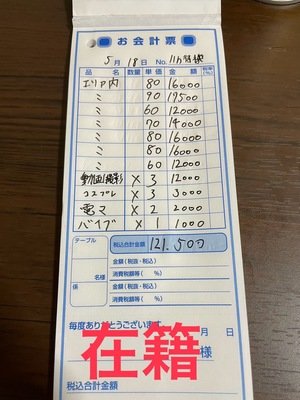 お会計票
5月 18日 No. 11時間様
品 名 数量 単価 金 額 税率(%)
エリア内 80 16000
〃 90 19500
〃 60 12000
〃 70 14000
〃 80 16000
〃 80 16000
〃 60 12000
動画撮影 × 3 12000
コスプレ × 3 3000
電マ × 2 2000
バイブ × 1 1000
テーブル 税込合計金額 121.500
金額(税抜・税込)
消費税額等( %)
係 名様 金額(税抜・税込)
消費税額等( %)
毎度ありがとうございます
月 日
在籍
様
税込合計金額